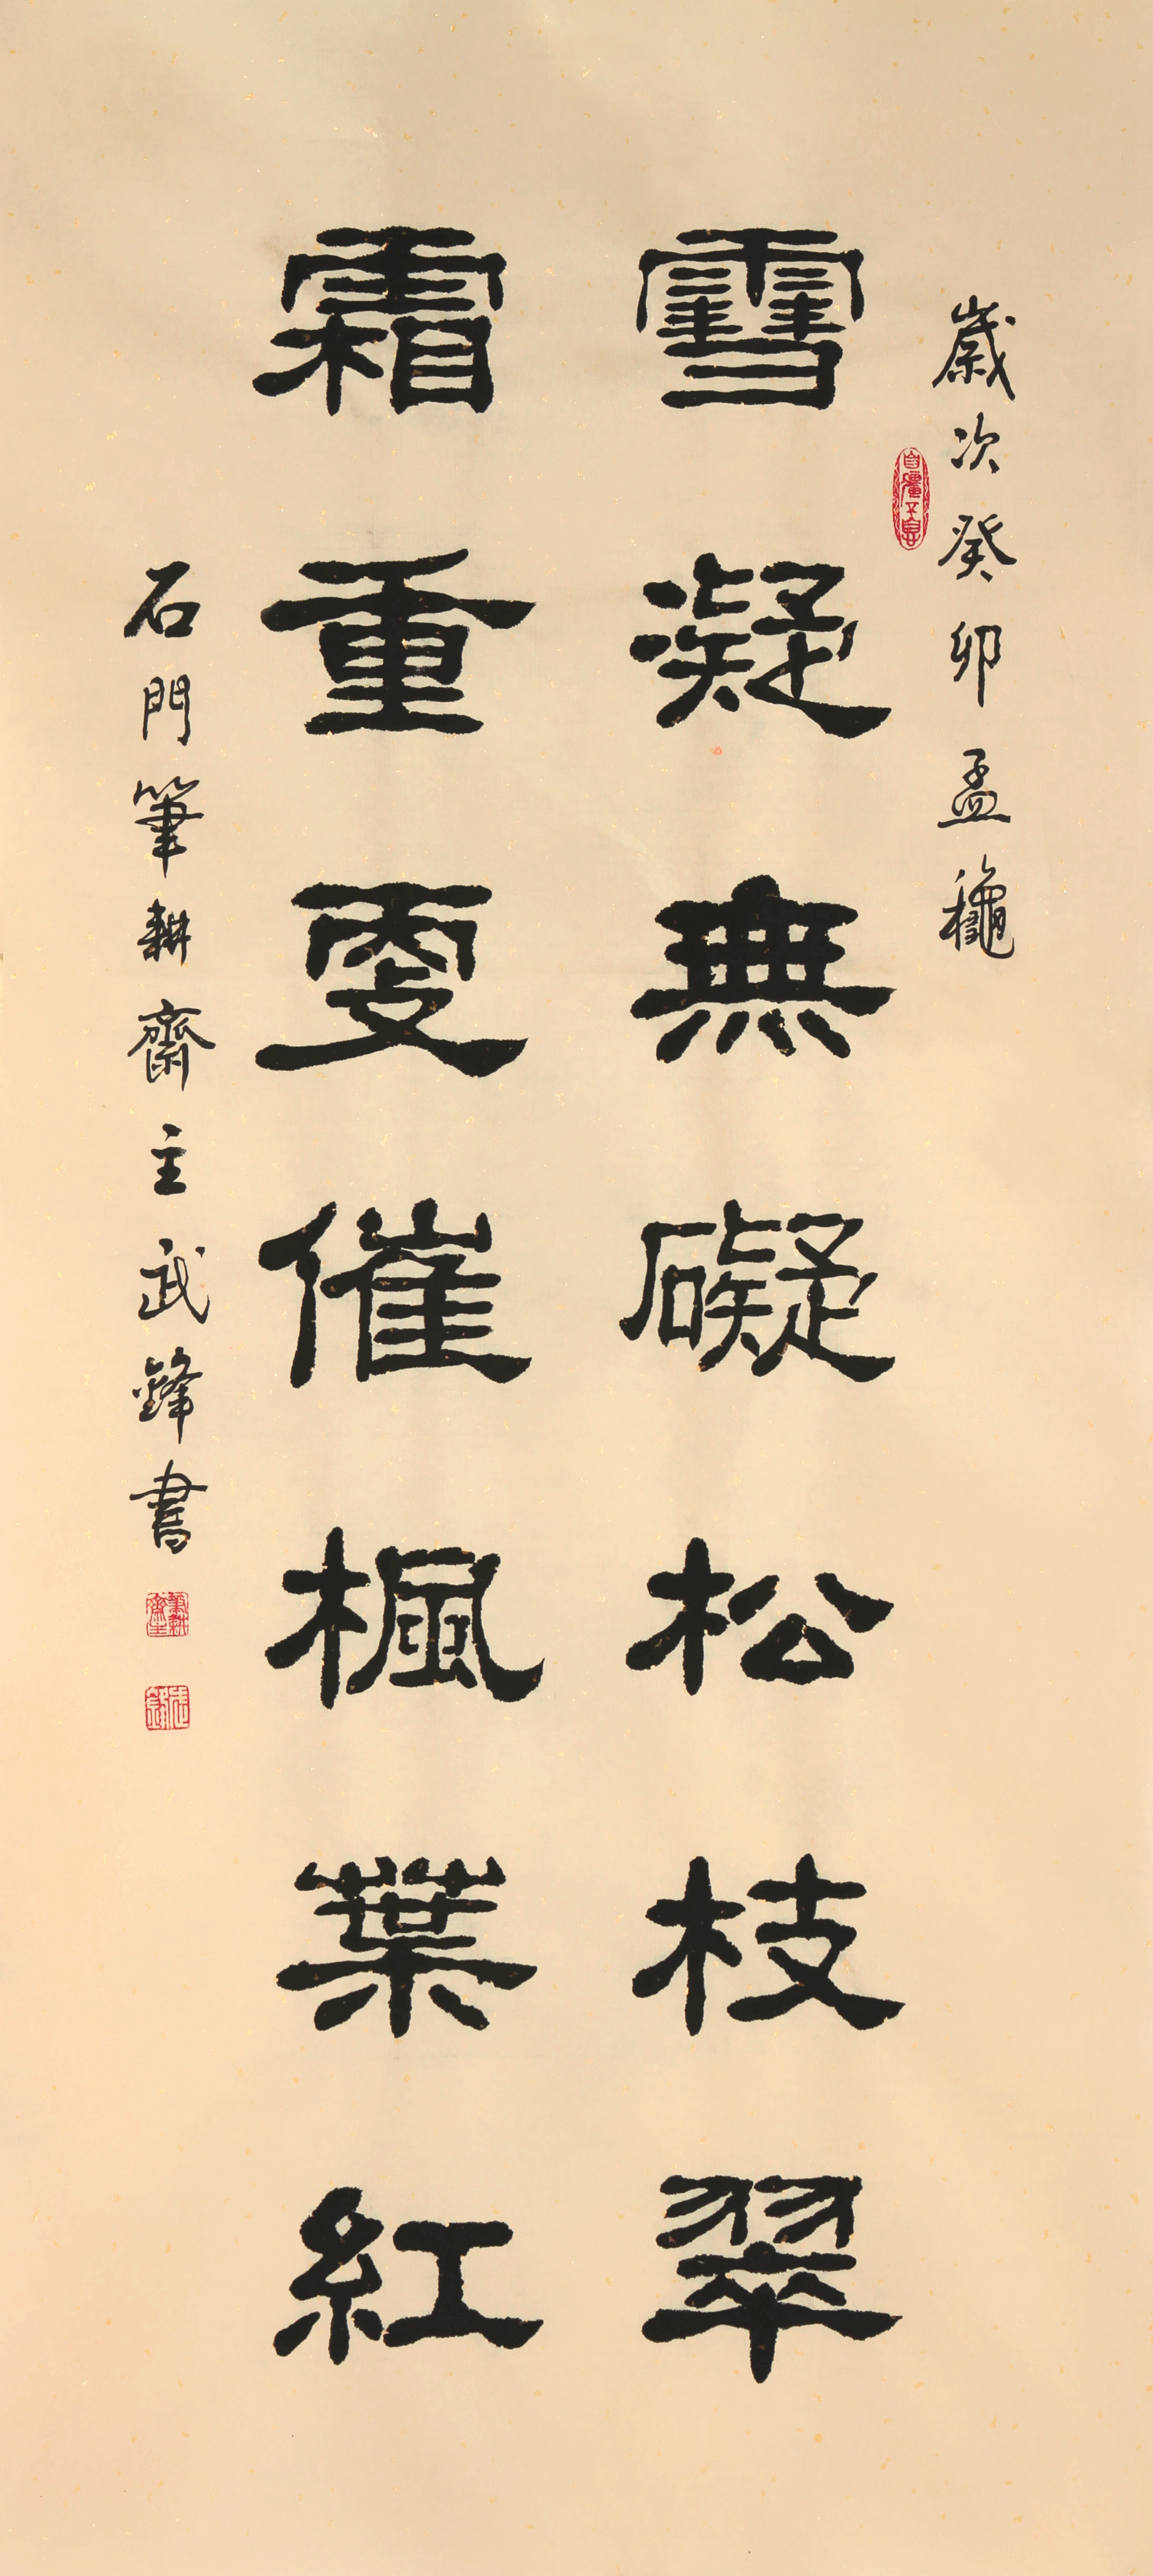 歲次癸卯孟穐
雪凝無礙松枝翠
霜重更催楓葉紅
石門筆耕齋主武鋒書
筆耕齋主